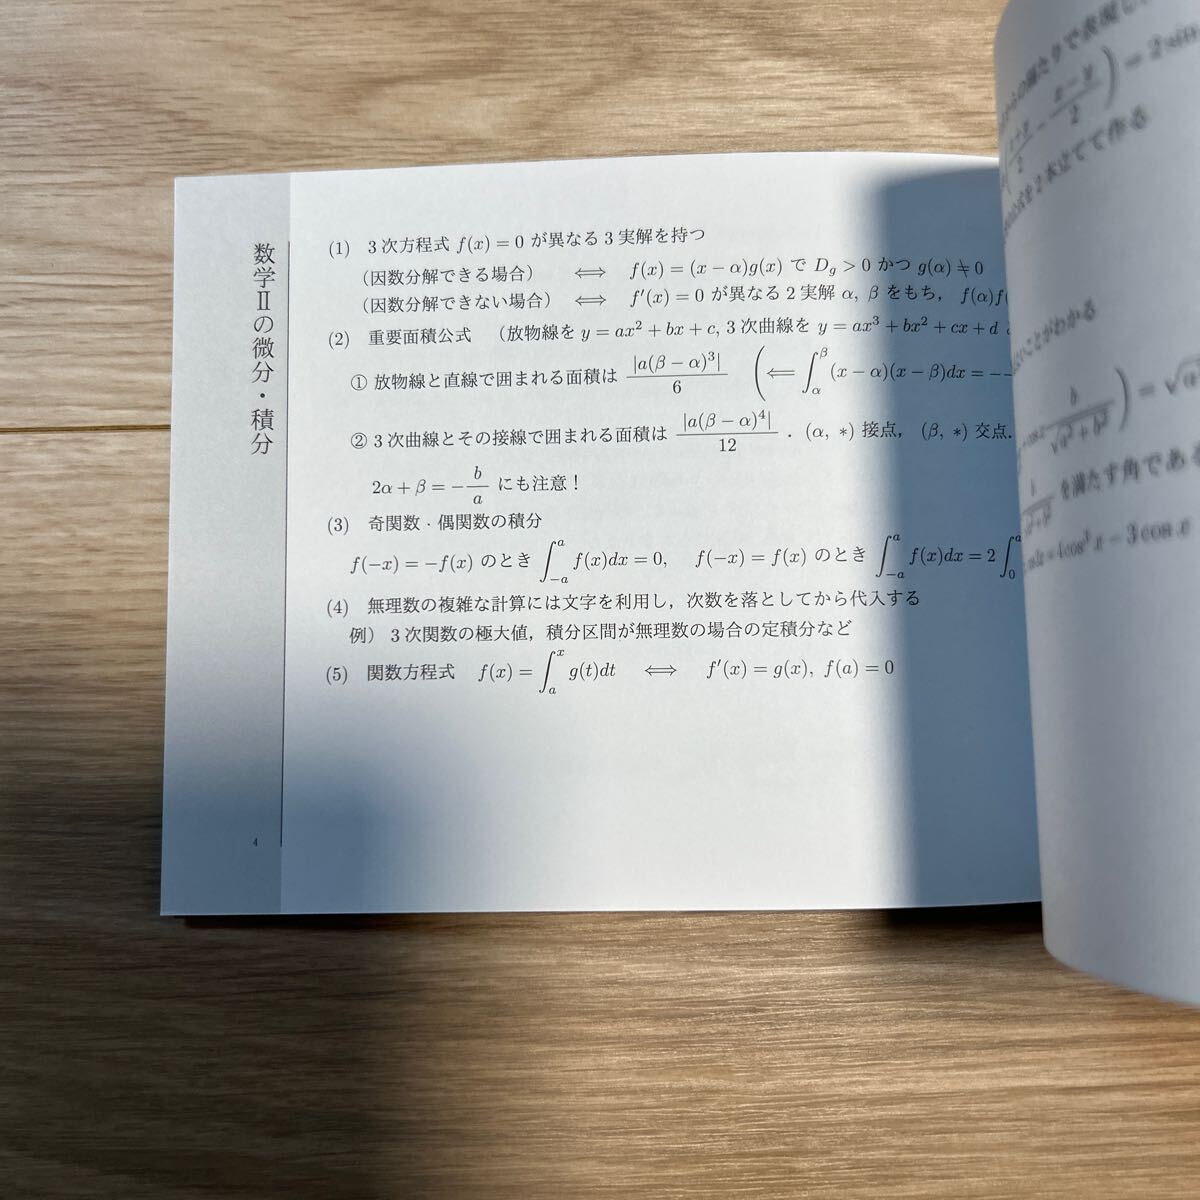 数学Ⅱの微分・積分
(1) 3次方程式 f(x) = 0 が異なる3実解を持つ
（因数分解できる場合） ⟺ f(x) = (x − α)g(x) で D_g > 0 かつ g(α) ≠ 0
（因数分解できない場合） ⟺ f′(x) = 0 が異なる2実解 α, β をもち， f(α)f(
(2) 重要面積公式 （放物線を y = ax² + bx + c, 3次曲線を y = ax³ + bx² + cx + d
① 放物線と直線で囲まれる面積は |a(β − α)³|/6 (⟸ ∫_α^β (x − α)(x − β)dx = −
② 3次曲線とその接線で囲まれる面積は |a(β − α)⁴|/12 . (α, *) 接点， (β, *) 交点.
2α + β = −b/a にも注意！
(3) 奇関数・偶関数の積分
f(−x) = −f(x) のとき ∫_{−a}^a f(x)dx = 0, f(−x) = f(x) のとき ∫_{−a}^a f(x)dx = 2∫_0^a
(4) 無理数の複雑な計算には文字を利用し，次数を落としてから代入する
例） 3次関数の極大値，積分区間が無理数の場合の定積分など
(5) 関数方程式 f(x) = ∫_a^x g(t)dt ⟺ f′(x) = g(x), f(a) = 0
4
(x+y/2 − x−y/2) = 2 sin
を2本立てて作る
ことがわかる
b/√(a² + b²)) = √a²
を満たす角である
= 4cos³x − 3cos x